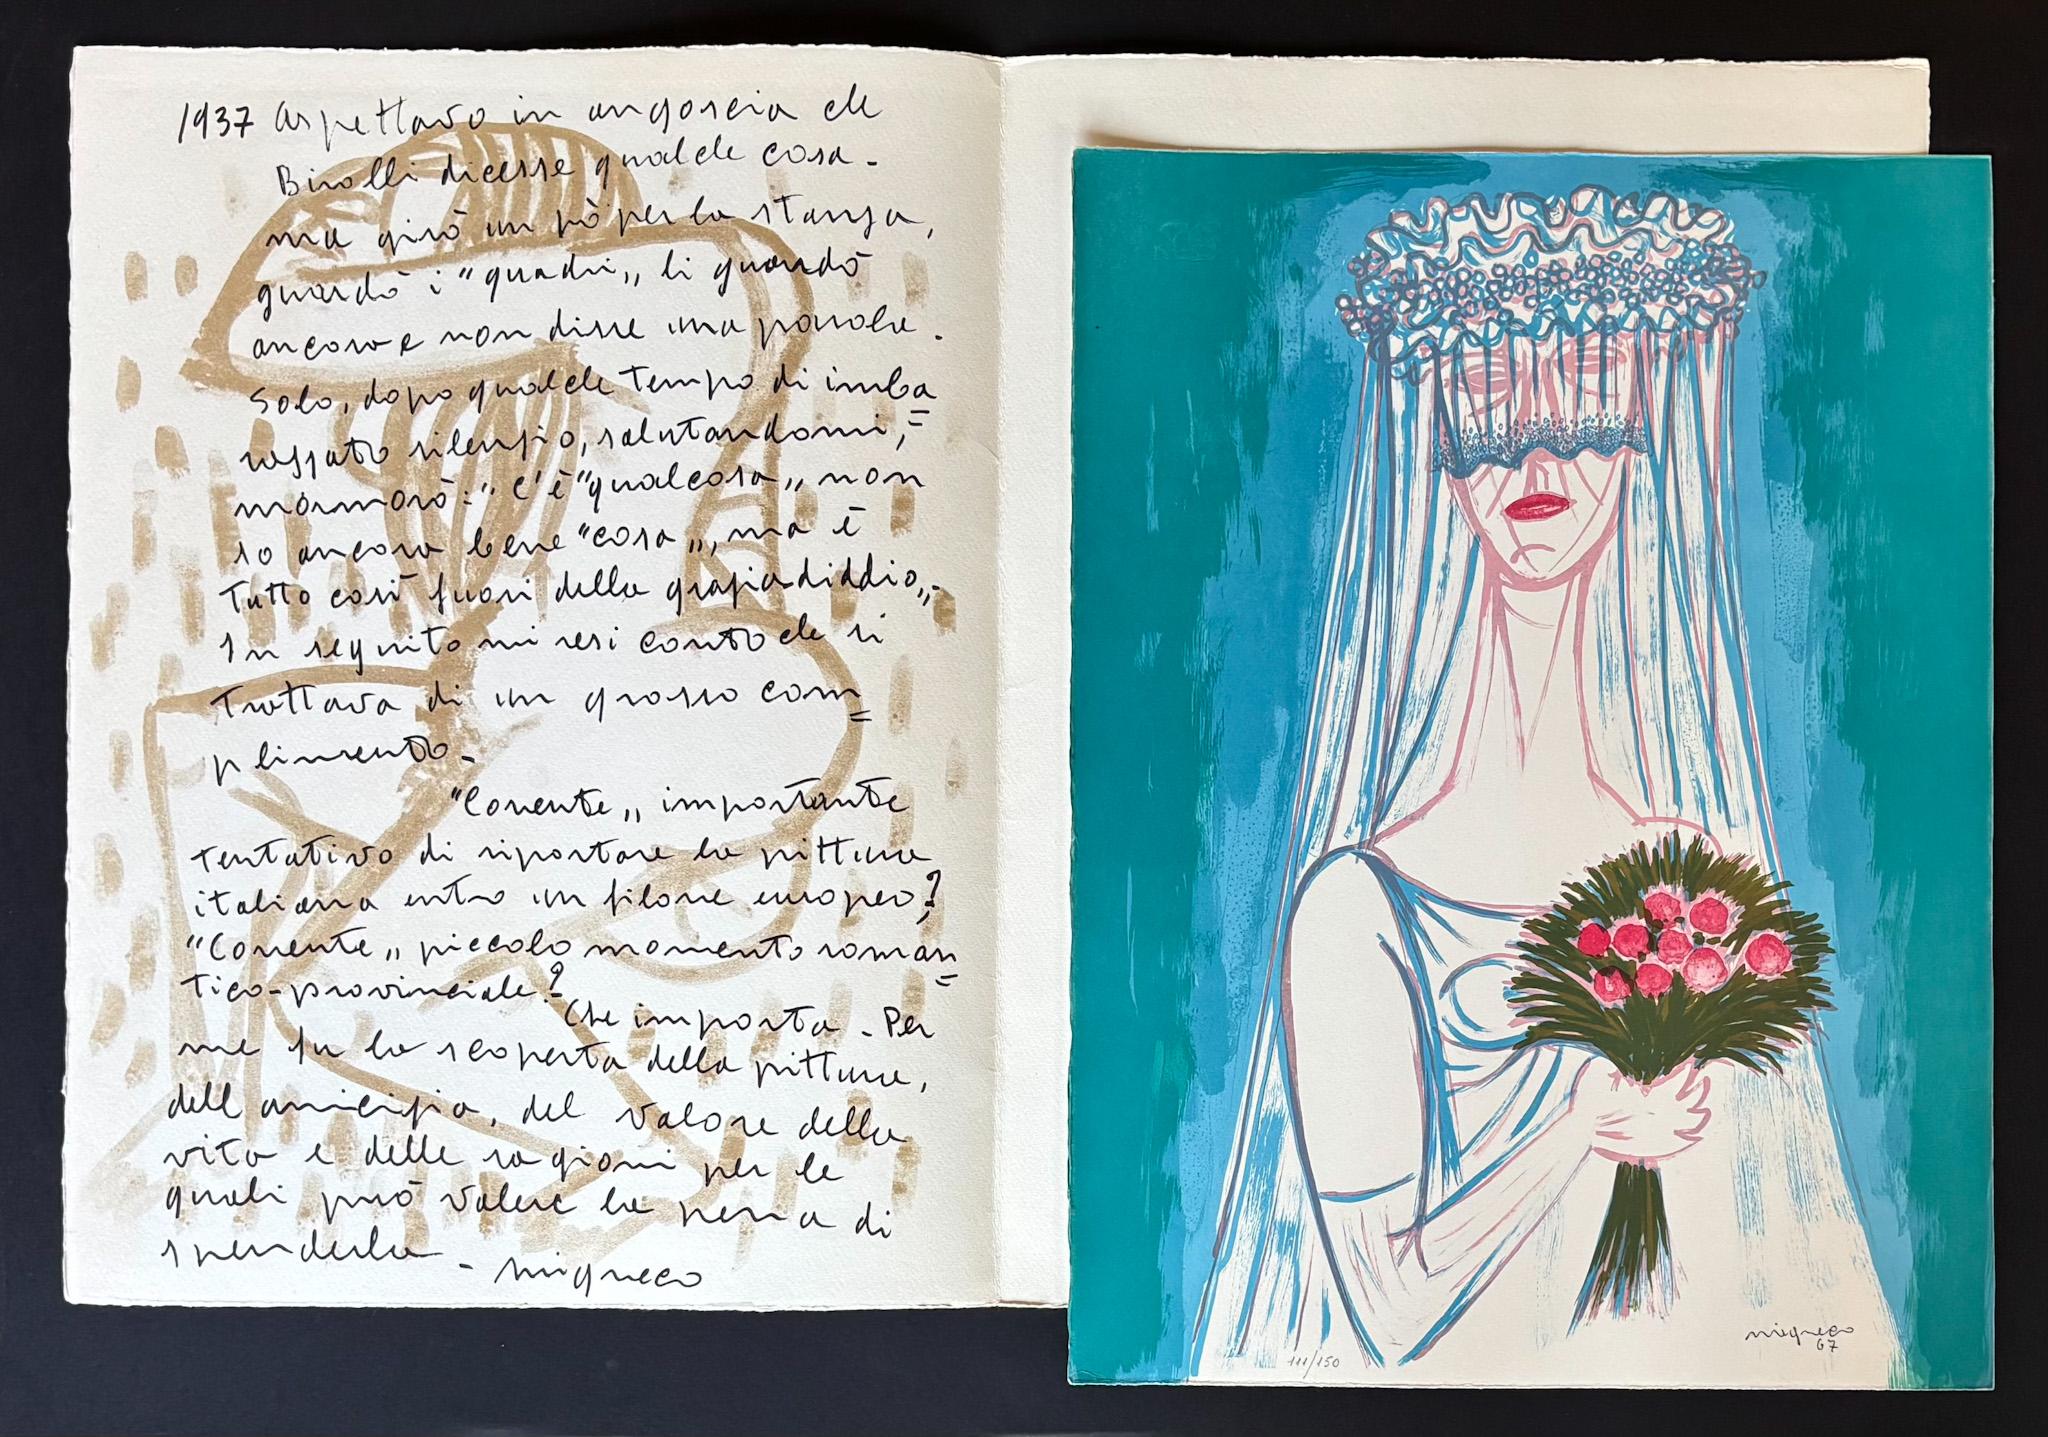 1937 Aspettavo in angoscia che
Birolli dicesse qualche cosa -
ma girò un pò per la stanza,
guardò i "quadri„ li guardò
ancora e non disse una parola.
Solo, dopo qualche tempo di imba=
razzato silenzio, salutandomi,
mormorò: "C'è "qualcosa„ non
so ancora bene "cosa„, ma è
tutto così fuori della graziadiddio„-
In seguito mi resi conto che si
trattava di un grosso com=
plimento -
"Corrente„ importante
tentativo di riportare la pittura
italiana entro un filone europeo?
"Corrente„ piccolo momento roman=
tico-provinciale?
Che importa - Per
me fu la scoperta della pittura,
dell'amicizia, del valore della
vita e delle ragioni per le
quali può valere la pena di
spenderla - Migneco
111/150
migneco
67